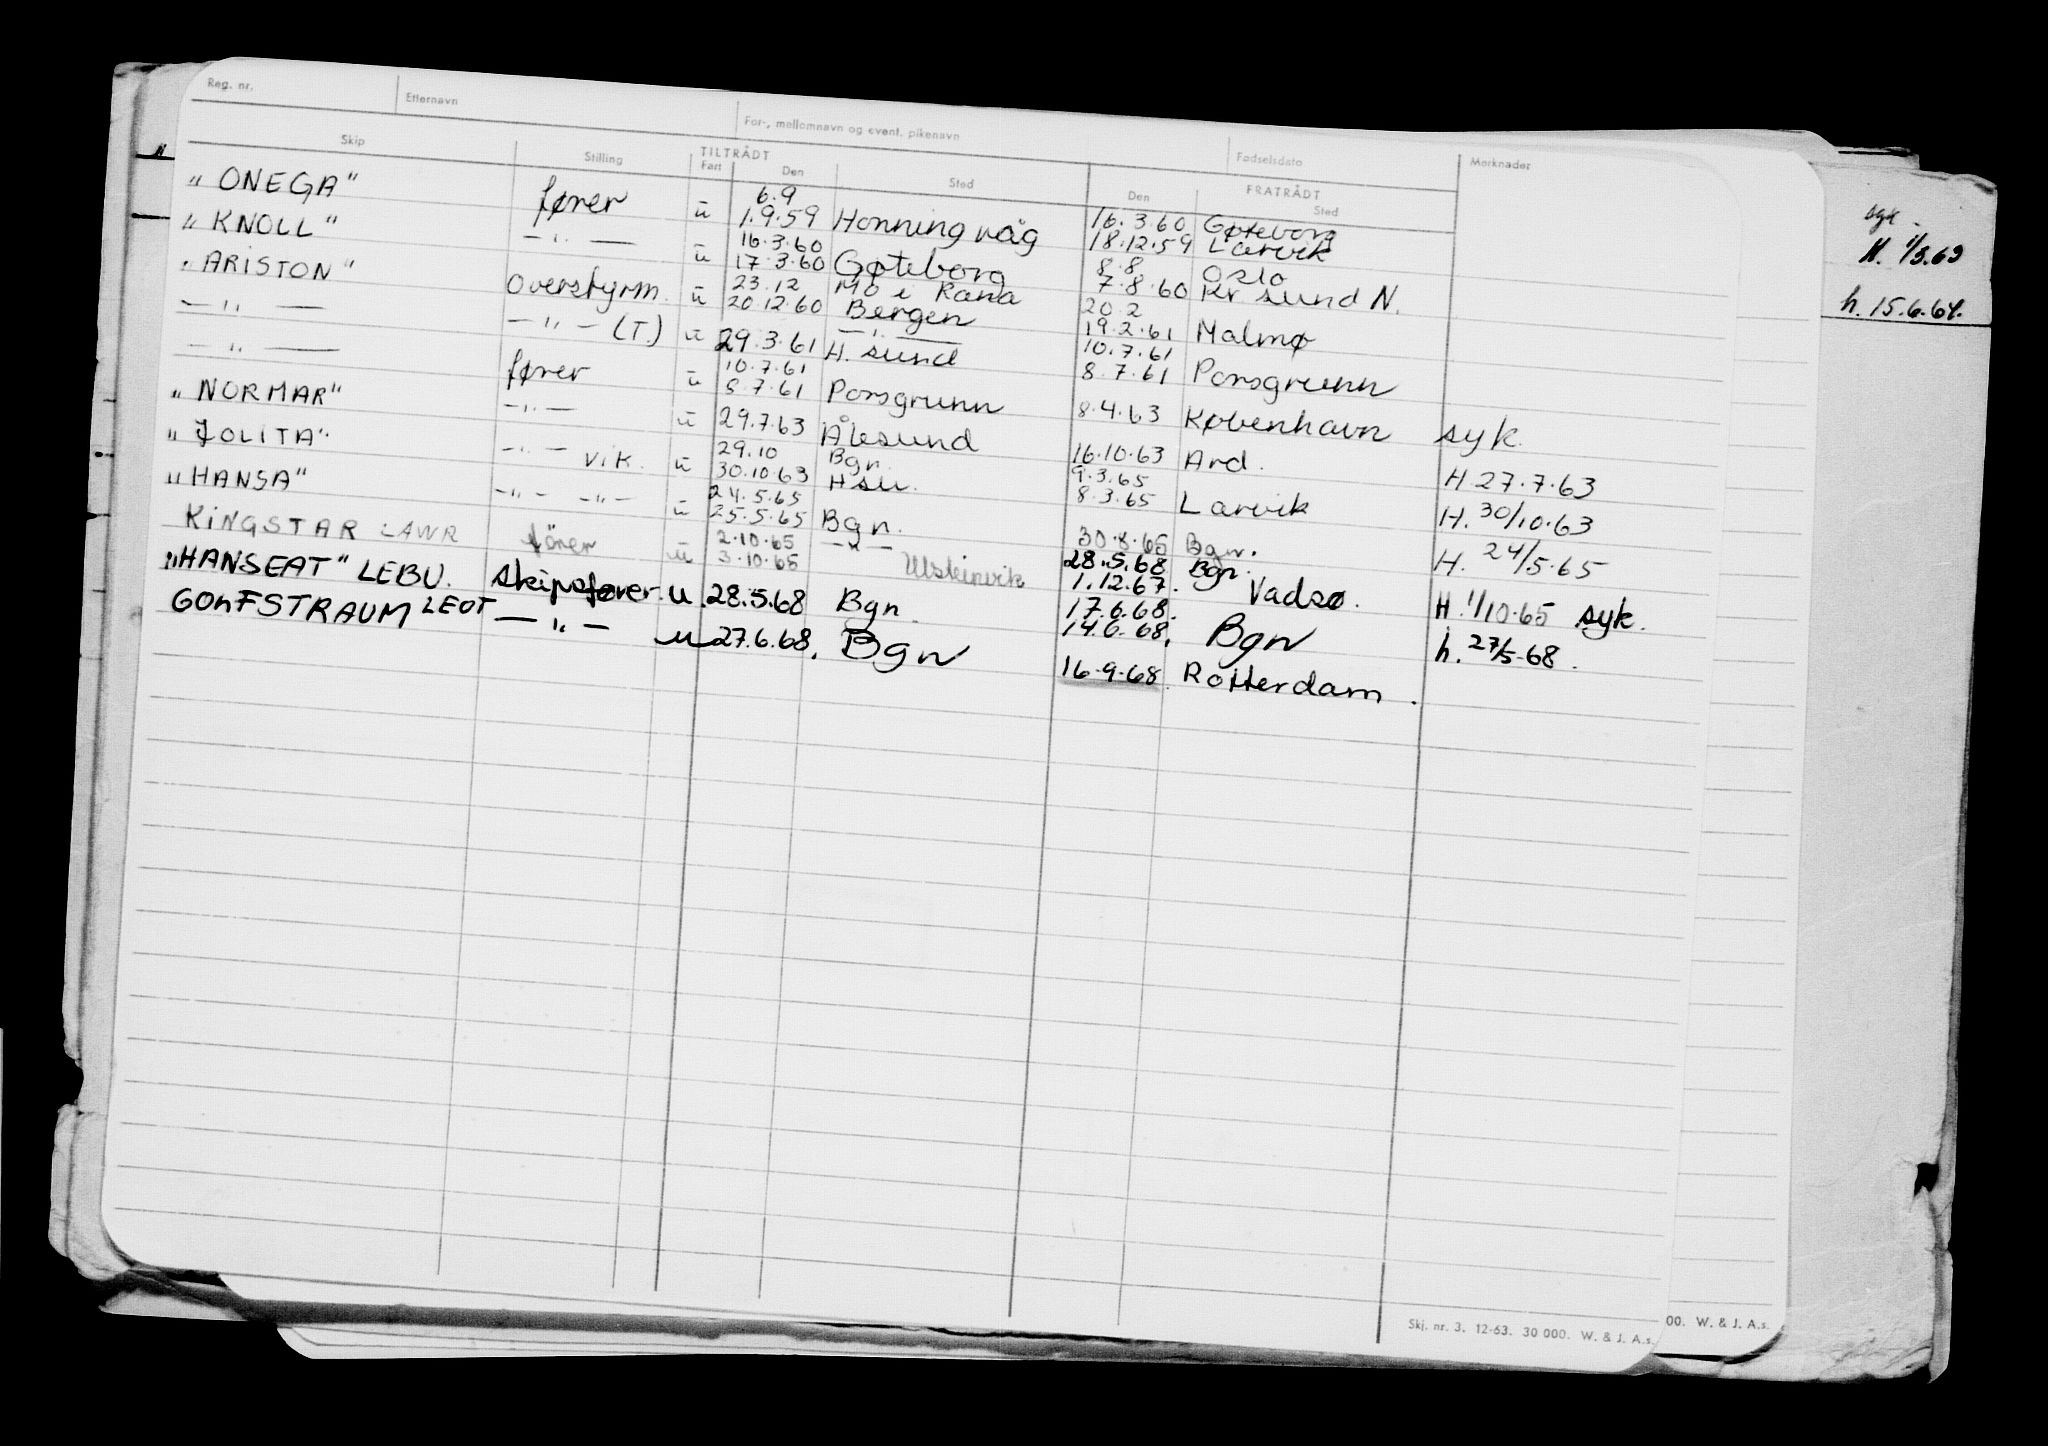 Reg. nr. Etternavn For-, mellomnavn og event. pikenavn Fødselsdato Merknader
Skip Stilling TILTRÅDT FRATRÅDT
Fart Den Sted Den Sted
„ONEGA" fører u 6.9 1.9.59 Honningvåg 16.3.60 18.12.59 Gøteborg Larvik
„KNOLL" —"— u 16.3.60 17.3.60 Gøteborg 8.8 7.8.60 Oslo Kr sund N.
„ARISTON" Overstyrm. u 23.12 20.12.60 Mo i Rana Bergen 20.2 19.2.61 Malmø
—"— —"— (T.) u 29.3.61 —"— H.sund 10.7.61 8.7.61 Porsgrunn
—"— fører u 10.7.61 8.7.61 Porsgrunn 8.4.63 København syk.
„NORMAR" —"— u 29.7.63 Ålesund 16.10.63 Ard. H 27.7.63
„JOLITA" —"— vik. u 29.10 30.10.63 Bgn. H su. 9.3.65 8.3.65 Larvik H. 30/10.63
„HANSA" —"— —"— u 24.5.65 25.5.65 Bgn. 30.8.65 Bgn. H. 24/5.65
KINGSTAR LAWR förer u 2.10.65 3.10.65 —"— Ulsteinvik 28.5.68 1.12.67. Bgn. Vadsø. H. 1/10.65 syk.
„HANSEAT" LEBU. Skipsfører. u. 28.5.68 Bgn. 17.6.68. 14.6.68. Bgn h. 27/5.68.
GOLFSTRAUM LEOT —"— u 27.6.68. Bgn 16.9.68. Rotterdam.
H. 1/3.63
h. 15.6.64.
Skj. nr. 3. 12-63. 30 000. W. & J. A.s.
00. W. & J. A.s.